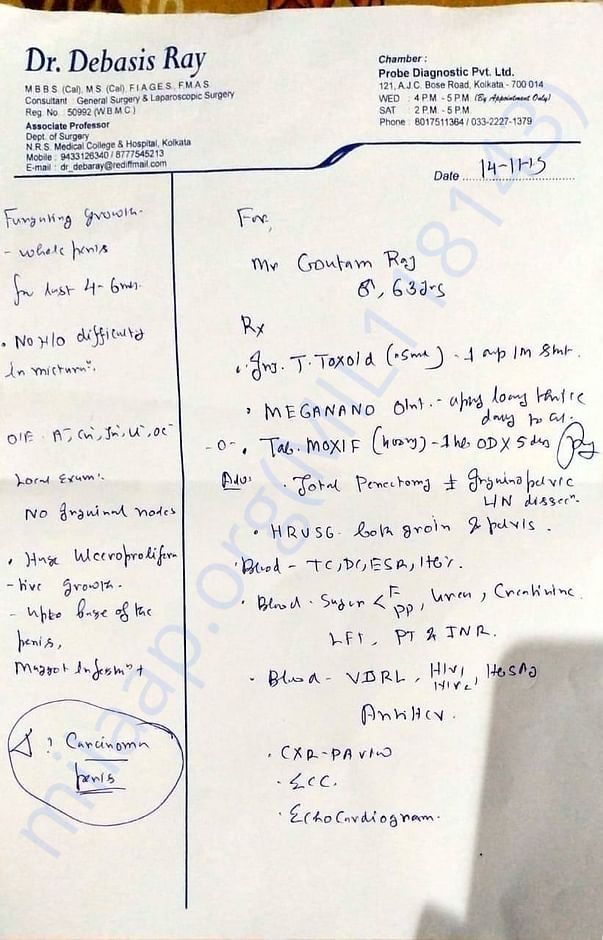 Dr. Debasis Ray
M B B S. (Cal), M S. (Cal), F I A G E S., F.M.A.S.
Consultant General Surgery & Laparoscopic Surgery
Reg. No. 50992 (W.B.M.C.)
Associate Professor
Dept. of Surgery
N.R.S. Medical College & Hospital, Kolkata
Mobile : 9433126340 / 8777545213
E-mail : dr_debaray@rediffmail.com
Chamber :
Probe Diagnostic Pvt. Ltd.
121, A.J.C. Bose Road, Kolkata - 700 014
WED : 4 P.M - 5 P.M (By Appointment Only)
SAT : 2 P.M - 5 P.M.
Phone : 8017511364 / 033-2227-1379
Date
Fungating growth-
- whole penis
for last 4-6
• No H/O difficulty
In
O/E
Local Exam:
No Inguinal nodes
• Huge Ulceroprolifera
-tive growth.
- upto base of the
penis,
Maggot
? Carcinoma
penis
For,
Mr Goutam Ray
63 yrs
Rx
• Inj. T. Toxoid - 1 amp IM
• MEGANANO Oint.
• Tab. MOXIF - OD X 5
Adv: • Total Penectomy ± Inguinopelvic
LN
• HRUSG both groin & pelvis.
• Blood - TC, DC, ESR,
• Blood - Sugar < F PP, Urea, Creatinine
LFT, PT & INR.
• Blood - VDRL, HIV1 HIV2, HBsAg
Anti HCV.
• CXR - PA view
• ECG.
• Echocardiogram.
milaap.org(MIL118143)